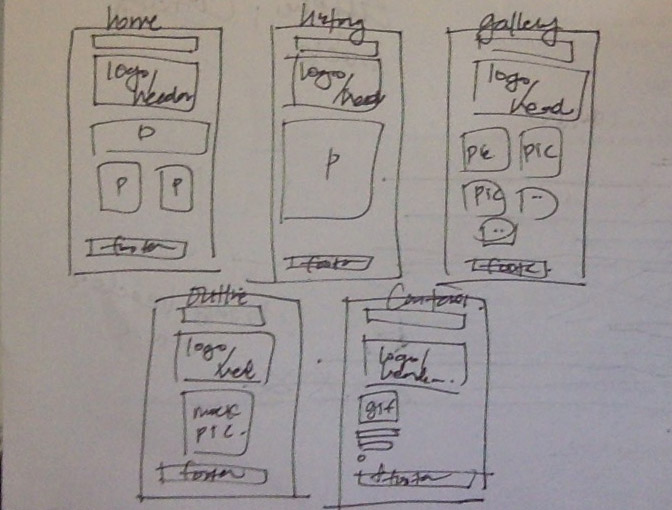 home
logo/
header
P
P P
footer
history
logo/
head
P
footer
gallery
logo/
head
pic pic
pic ..
..
footer
logo/
head
mock
pic.
footer
logo/
gif
footer